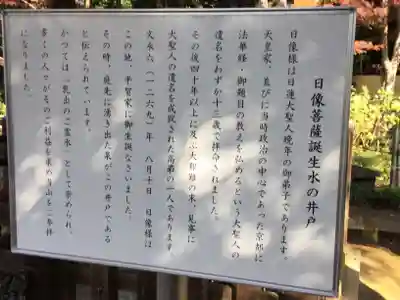 日像菩薩誕生水の井戸
日像様は日蓮大聖人晩年の御弟子であります。
天皇家、並びに当時政治の中心であった京都に
法華経・御題目の教えを弘めるという大聖人の
遺名をわずか十三歳で拝命されました。
その後四十年以上に及ぶ大御難の末、見事に
大聖人の遺名を成就された高弟の一人であります
文永六(一二六九)年 八月十日 日像様は
この地、平賀家に御生誕なさいました。
その時、庭先に湧き出た泉がこの井戸である
と伝えられています。
かつては「乳出のご霊水」として崇められ、
多くの人々がそのご利益を求め当山を二年拝
になりました。